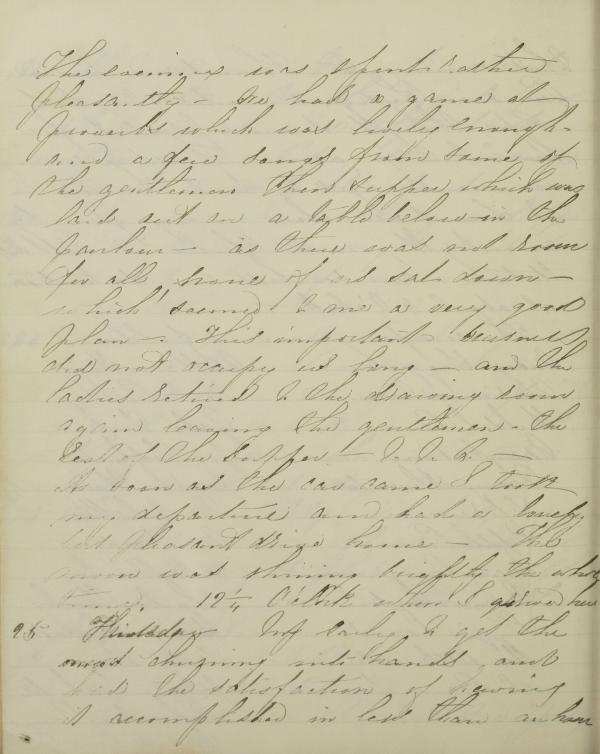 The evening was spent rather
pleasantly - we had a game at
proverbs which was lively enough -
and a few songs from some of
the gentlemen then supper which was
laid out on a table below in the
parlour - as there was not room
for all none of us sat down -
which seemed to me a very good
plan -. This important business
did not occupy us long - and the
ladies retired to the drawing room
again leaving the gentlemen - the
rest of the supper -
As soon as the car came I took
my departure and had a lonely
but pleasant drive home - The
moon was shining brightly the whole
time. 12 1/4 O'Clock when I arrived here
25 Thursday Up early to get the
churning into hands and
had the satisfaction of having
it accomplished in less than an hour